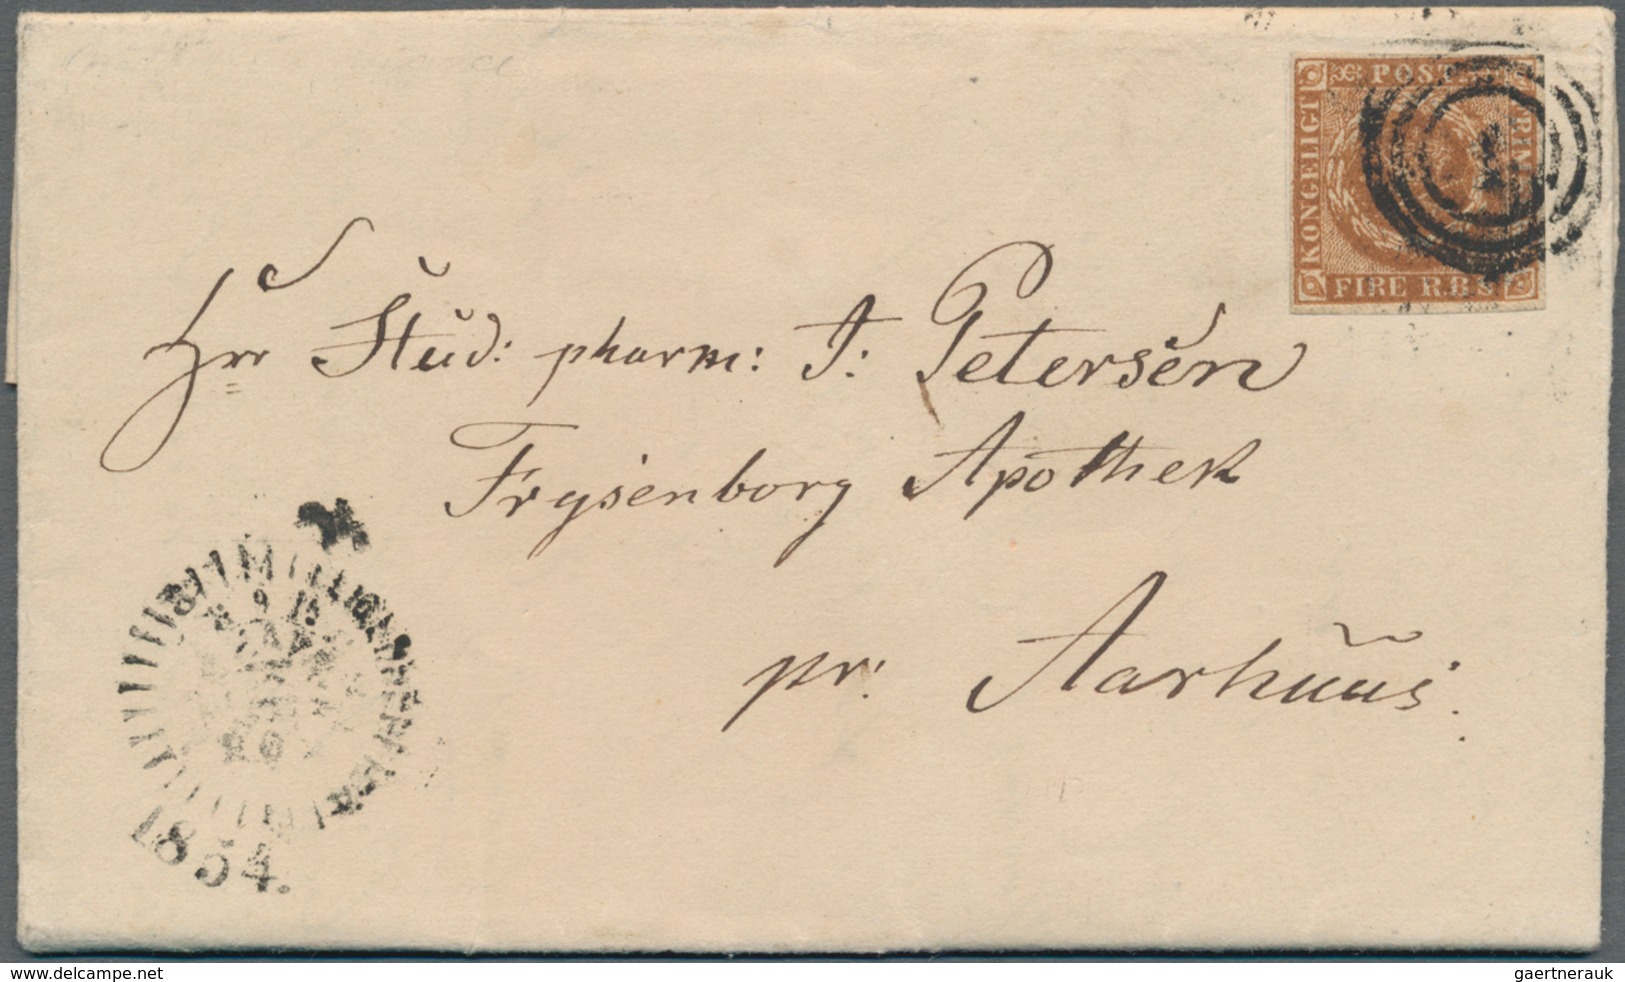 KONGELIGT
POST
FIRE R.B.S.
1
Hrr Stud: pharm: J: Petersen
Frysenborg Apothek
pr: Aarhuus.
1854.
www.delcampe.net
gaertnerauk